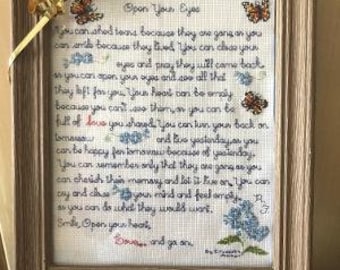 Open Your Eyes
You can shed tears because they are gone, or you
can smile because they lived. You can close your
eyes and pray they will come back
or you can open your eyes and see all that
they left for you. Your heart can be empty
because you can't see them, or you can be
full of Love you shared. You can turn your back on
tomorrow and live yesterday, or you
can be happy for tomorrow because of yesterday.
You can remember only that they are gone, or you
can cherish their memory and let it live on. You can
cry and close your mind and feel empty,
or you can do what they would want.
Smile, Open your heart,
Love... and go on.